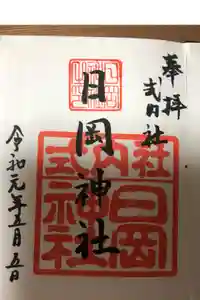 奉拝
式内社
日岡神社
令和元年五月五日
式内社
日岡
神社